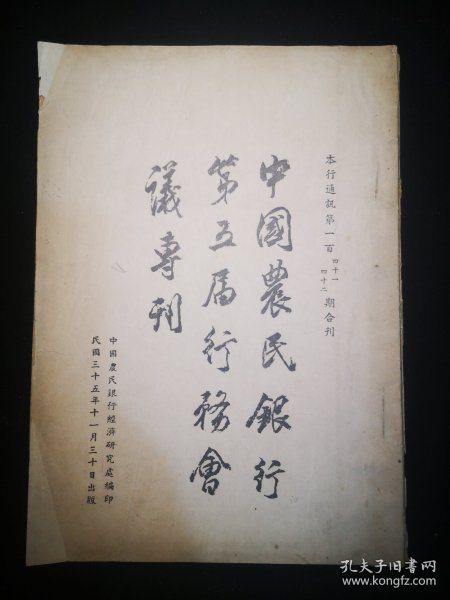 本行通訊第一百四十一四十二期合刊
中國農民銀行
第五届行務會
議專刊
中國農民銀行經濟研究處編印
民國三十五年十一月三十日出版
孔夫子旧书网
www.kongfz.com